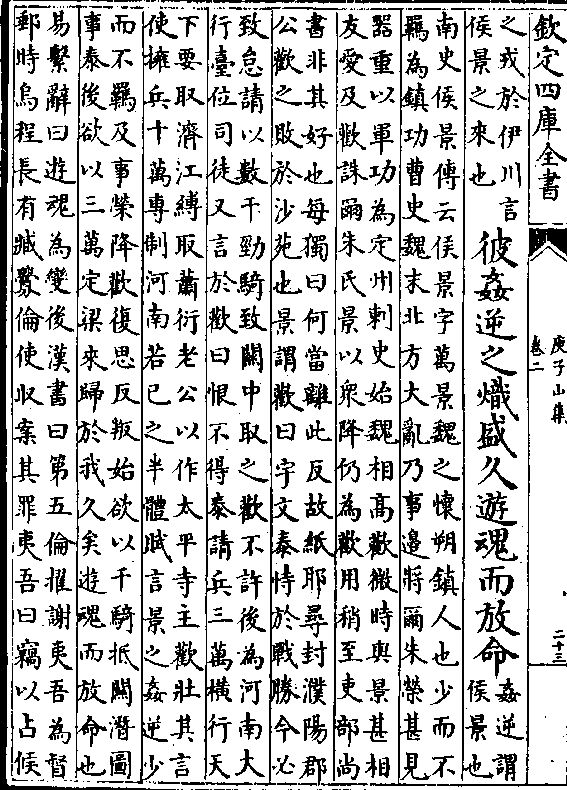 欽定四庫全書
庚子山集
卷二
二十三
之戎於伊川言
侯景之來也
彼姦逆之熾盛久遊魂而放命
姦逆謂
侯景也
南史侯景傳云侯景字萬景魏之懷朔鎮人也少而不
羈為鎮功曹史魏末北方大亂乃事邊將爾朱榮甚見
器重以軍功為定州刺史始魏相高歡微時與景甚相
友愛及歡誅爾朱氏景以衆降仍為歡用稍至吏部尚
書非其好也每獨曰何當離此反故紙耶尋封濮陽郡
公歡之敗於沙苑也景謂歡曰宇文泰恃於戰勝今必
致怠請以數千勁騎致關中取之歡不許後為河南大
行臺位司徒又言於歡曰恨不得泰請兵三萬橫行天
下要取濟江縛取蕭衍老公以作太平寺主歡壯其言
使擁兵十萬專制河南若已之半體賦言景之姦逆少
而不羈及事榮降歡復思反叛始欲以千騎抵關潛圖
事泰後欲以三萬定梁來歸於我久矣遊魂而放命也
易繫辭曰遊魂為變後漢書曰第五倫擢謝夷吾為督
郵時烏程長有贓釁倫使収案其罪夷吾曰竊以占候